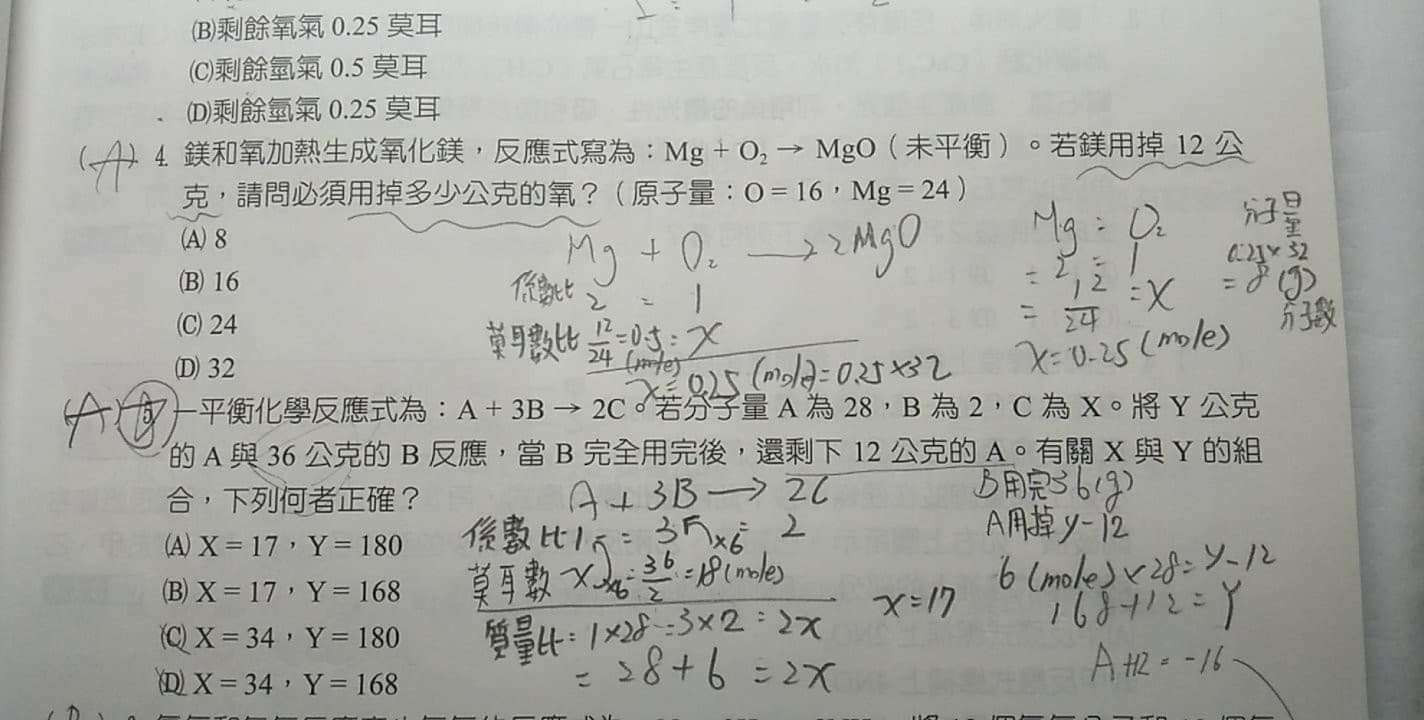 (B)剩餘氧氣 0.25 莫耳
(C)剩餘氫氣 0.5 莫耳
(D)剩餘氫氣 0.25 莫耳
(A) 4. 鎂和氧加熱生成氧化鎂，反應式寫為：Mg + O₂ → MgO（未平衡）。若鎂用掉 12 公
克，請問必須用掉多少公克的氧？（原子量：O = 16，Mg = 24）
(A) 8
(B) 16
(C) 24
(D) 32
Mg + O₂ → 2MgO
係數比 2 : 1
莫耳數比 12/24 = 0.5 : x
(mole)
x = 0.25 (mole) = 0.25×32
Mg : O₂
= 2 : 1
= 12/24 : x
x = 0.25 (mole)
分子量
0.25×32
= 8 (g)
分子數
(A) 一平衡化學反應式為：A + 3B → 2C。若分子量 A 為 28，B 為 2，C 為 X。將 Y 公克
的 A 與 36 公克的 B 反應，當 B 完全用完後，還剩下 12 公克的 A。有關 X 與 Y 的組
合，下列何者正確？
(A) X = 17，Y = 180
(B) X = 17，Y = 168
(C) X = 34，Y = 180
(D) X = 34，Y = 168
A + 3B → 2C
係數比 1 : 3 : 2
×6
莫耳數 x : 36/2 = 18 (mole)
×6
質量比 : 1×28 : 3×2 : 2x
= 28 + 6 = 2x
x = 17
B用完36(g)
A用掉 y-12
6 (mole) × 28 = y-12
168+12 = Y
A+12 = -16